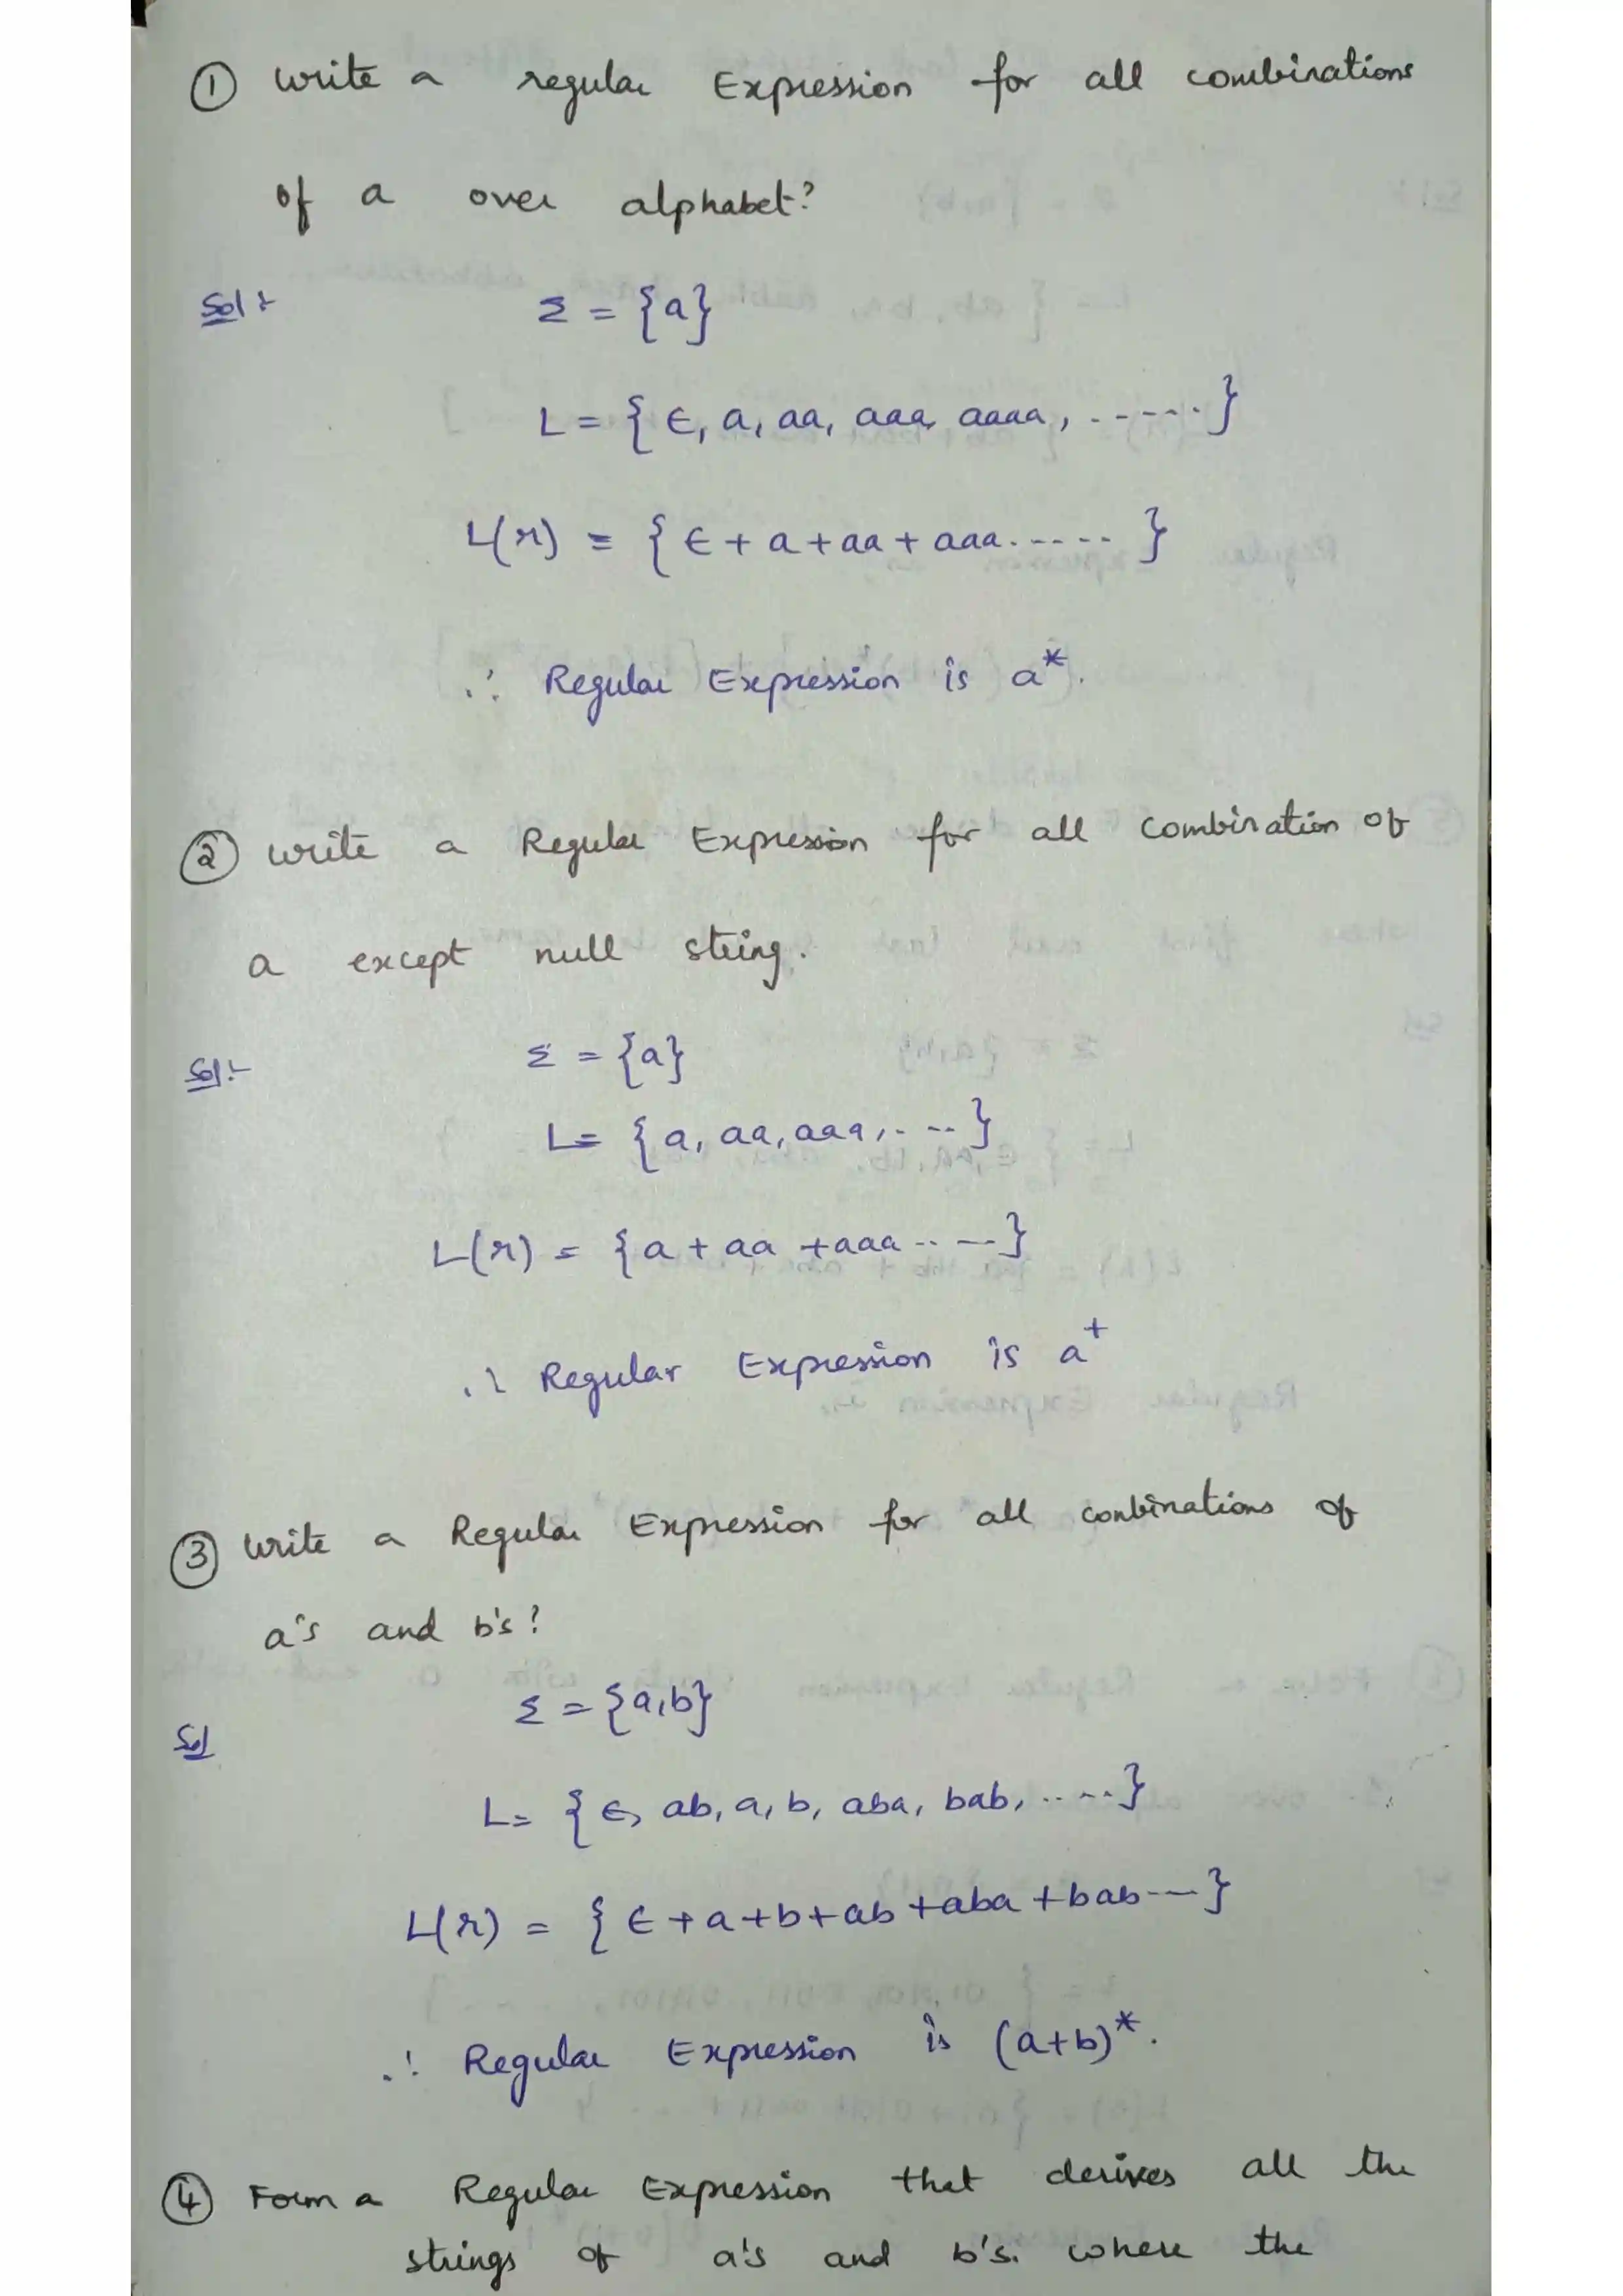 ① Write a regular Expression for all combinations
of a over alphabet?
Sol :-
Σ = {a}
L = { ϵ, a, aa, aaa, aaaa, ------ }
L(r) = { ϵ + a + aa + aaa ------ }
∴ Regular Expression is a*.
② Write a Regular Expression for all combination of
a except null string.
Sol :-
Σ = {a}
L = { a, aa, aaa, ---- }
L(r) = { a + aa + aaa ---- }
∴ Regular Expression is a⁺
③ Write a Regular Expression for all conbinations of
a's and b's?
Sol
Σ = {a,b}
L = { ϵ, ab, a, b, aba, bab, ..... }
L(r) = { ϵ + a + b + ab + aba + bab --- }
∴ Regular Expression is (a+b)*.
④ Form a Regular Expression that derives all the
strings of a's and b's. where the